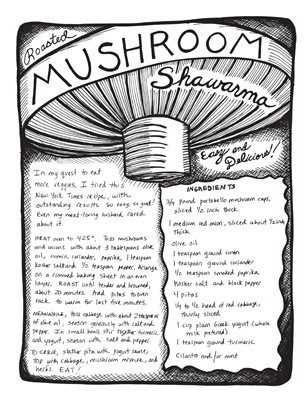 Roasted
MUSHROOM
Shawarma
Easy and
Delicious!
In my quest to eat
more veggies, I tried this
New York Times recipe, with
outstanding results. So easy, so good!
Even my meat-loving husband raved
about it.
HEAT oven to 425°. Toss mushrooms
and onions with about 3 tablespoons olive
oil, cumin, coriander, paprika, 1 teaspoon
kosher salt and ½ teaspoon pepper. Arrange
on a rimmed baking sheet in an even
layer. ROAST until tender and browned,
about 20 minutes. Add pitas to oven
rack to warm for last five minutes.
MEANWHILE, toss cabbage with about 2 teaspoons
of olive oil; season generously with salt and
pepper. In small bowl, stir together turmeric
and yogurt, season with salt and pepper.
TO SERVE, slather pita with yogurt sauce,
top with cabbage, mushroom mixture, and
herbs. EAT!
INGREDIENTS
3/4 pound portobello mushroom caps,
sliced ½ inch thick
1 medium red onion, sliced about ½ inch
thick
olive oil
1 teaspoon ground cumin
1 teaspoon ground coriander
½ teaspoon smoked paprika
Kosher salt and black pepper
4 pitas
¼ to ½ head of red cabbage,
thinly sliced
1 cup plain Greek yogurt (whole
milk preferred)
1 teaspoon ground turmeric
Cilantro and/or mint